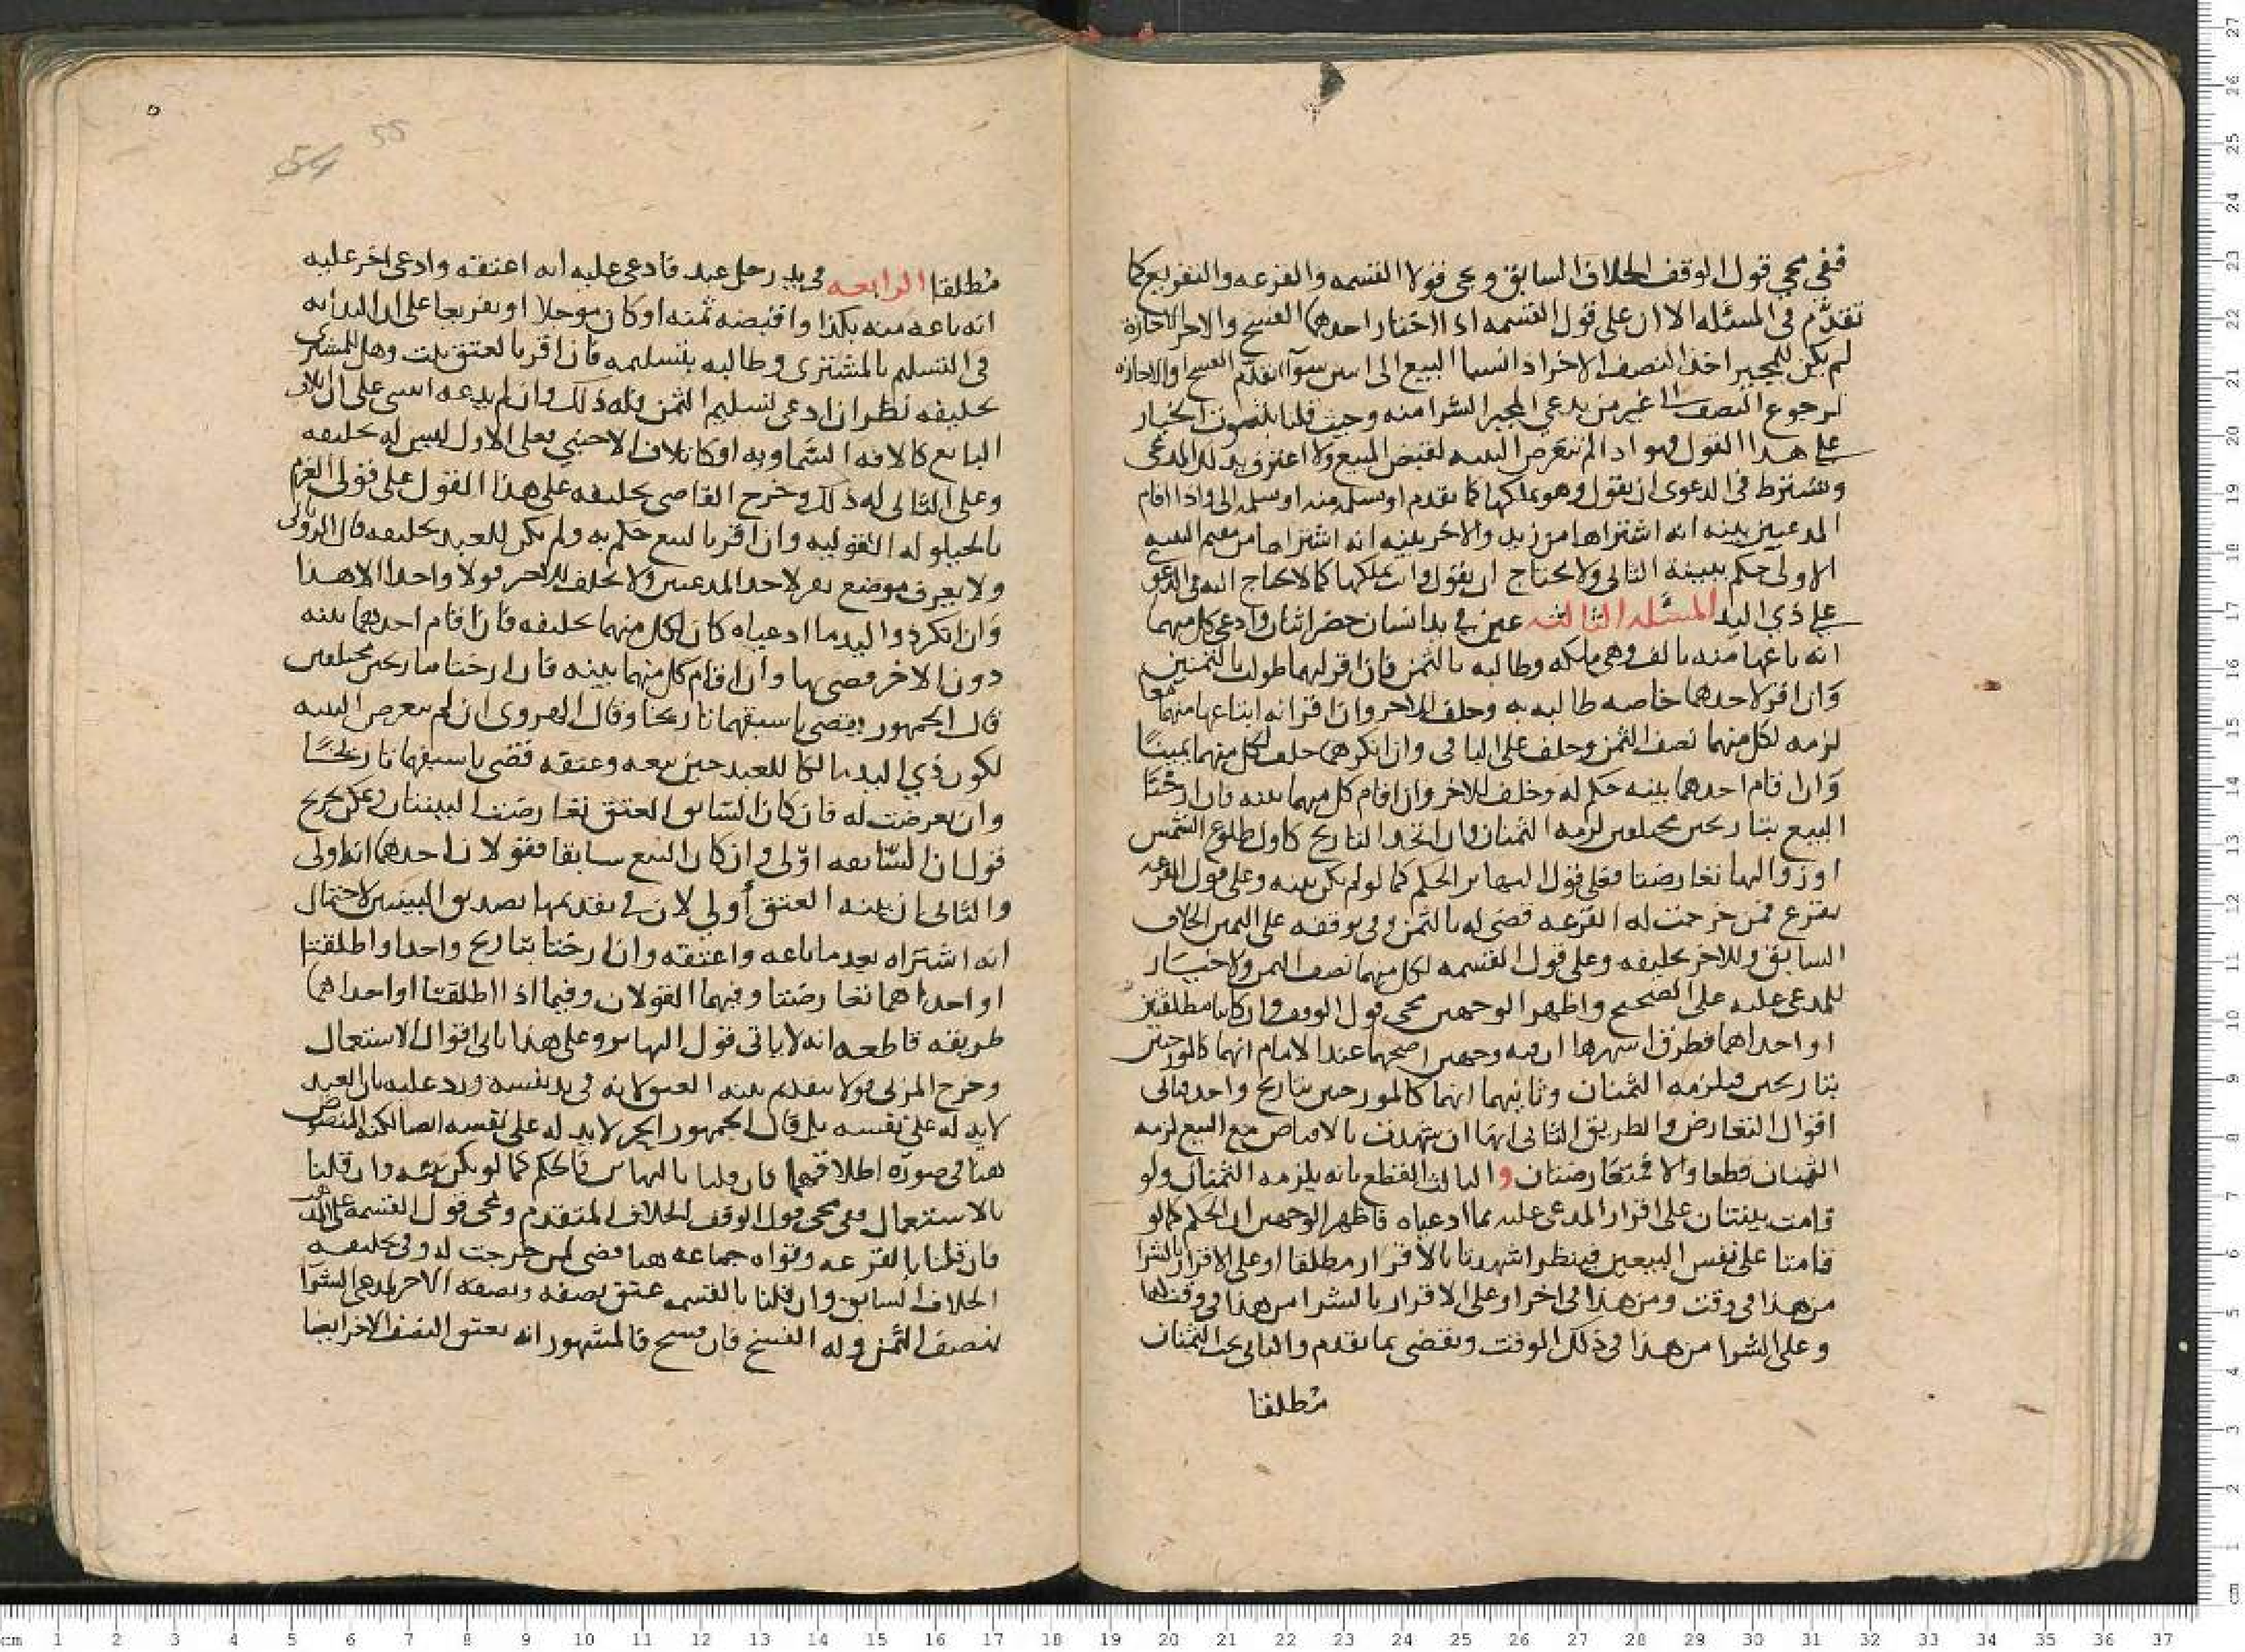 ففى مجي قول الوقف الخلاف السابق وعى قولا القسمه والقرعه والتفريع كما
تقدّم فى المسئله الا ان على قول القسمه اذا اختار احدهما الفسخ والاخر الاجازة
لم يكن للمجيز اخذ النصف الاخر اذ انسبا البيع الى اسين سوآ تقدم الفسخ او الاجازه
لرجوع النصف الى غير من يدعى المجيز الشرا منه وحيث قلنا بثبوت الخيار
على هدا القول فهو اذ الم تتعرض البينه لقبض المبيع ولا اعترف به المدعى
ويشترط فى الدعوى ان يقول وهو يملكها كما تقدم او سلمه منه او سلمه الى واذا اقام
المدعيين بينه انه اشتراها من زيد والاخر بينه انه اشتراها من مقيم البينه
الاولى حكم ببينه الثانى ولا يحتاج ان يقول وانت تملكها كما لا يحتاج اليه فى الدعوى
على ذي اليد المسئله الثالثه عين في يد انسان حضر اثنان وادعى كل منهما
انه باعها منه بالف وهى ملكه وطالبه بالثمن فان اقر لهما طولب بالثمنين
وان اقر لاحدهما خاصه طالبه به وحلف للاخر وان اقر انه ابتاعها منهما معا
لزمه لكل منهما نصف الثمن وحلف على الباقى وان انكرهما حلف لكل منهما يمينًا
وان اقام احدهما بينه حكم له وحلف للاخر وان اقام كل منهما بينه فان ارختا
البيع بتاريخين مختلفين لزمه الثمنان وان اتحد التاريخ كاول طلوع الشمس
او زوالها تعارضتا فعلى قول التهاتر الحكم كما لو لم تكن بينه وعلى قول القرعه
يقرع فمن خرجت له القرعه قضى له بالثمن وفى توقفه على اليمين الخلاف
السابق وللاخر تحليفه وعلى قول القسمه لكل منهما نصف الثمن ولا خيار
للمدعى عليه على الصحيح واظهر الوجهين مجى قول الوقف وان كانتا مطلقتين
او احداهما فطرق اشهرها ان فيه وجهين اصحهما عند الامام انهما كالمورختين
بتاريخين فيلزمه الثمنان وثانيهما انهما كالمورختين بتاريخ واحد فياتى
اقوال التعارض والطريق الثانى انهما ان شهدت بالاقباض مع البيع لزمه
الثمنان قطعا والا فمتعارضتان والثالث القطع بانه يلزمه الثمنان ولو
قامت بينتان على اقرار المدعى عليه بما ادعياه فاظهر الوجهين ان الحكم كما لو
قامتا على نفس البيعين فينظر اشهدتا بالاقرار مطلقا او على الاقرار بالشرا
من هذا فى وقت ومن هذا فى اخر او على الاقرار بالشرا من هذا فى وقت كذا
وعلى الشرا من هذا فى ذلك الوقت ويقضى بما تقدم والثانى يجب الثمنان
مطلقا
مطلقا الرابعه فى يد رجل عبد فادعى عليه انه اعتقه وادعى اخر عليه
انه باعه منه بكذا واقبضه ثمنه او كان موجلا او تفريعا على ان البدايه
فى التسليم بالمشترى وطالبه بتسليمه فان اقر بالعتق ثبت وهل للمشترى
تحليفه نظر ان ادعى تسليم الثمن فله ذلك وان لم يدعه انبنى على ان اتلاف
البايع كالافه السماويه او كاتلاف الاجنبي فعلى الاول ليس له تحليفه
وعلى الثانى له ذلك وخرج القاضى تحليفه على هذا القول على قولى الغرم
بالحيلوله القوليه وان اقر بالبيع حكم به ولم يكن للعبد تحليفه قال الرويانى
ولا يعرف موضع يقر لاحد المدعيين ولا يحلف للاخر قولا واحدا الا هذا
وان انكر ذو اليد ما ادعياه كان لكل منهما تحليفه فان اقام احدهما بينه
دون الاخر قضى بها وان اقام كل منهما بينه فان ارختا بتاريخين مختلفين
قال الجمهور يقضى باسبقهما تاريخا وقال الهروى ان لم تتعرض البينه
لكون ذي اليد مالكا للعبد حين بيعه وعتقه قضى باسبقهما تاريخًا
وان تعرضت له فان كان السابق العتق تعارضت البينتان ويمكن تخريج
قول ان السابقه اوّلى وان كان البيع سابقا فقولان احدهما انها اولى
والثانى ان بينه العتق أولى لان في تقديمها تصديق البينتين لاحتمال
انه اشتراه بعد ما باعه واعتقه وان ارختا بتاريخ واحد او اطلقتا
او احداهما تعارضتا وفيهما القولان وفيما اذا اطلقتا او احداهما
طريقه قاطعه انه لا ياتى قول التهاتر وعلى هذا ياتى اقوال الاستعمال
وخرج المزنى قولا بتقديم بينه العتق لانه فى يد نفسه ورد عليه بان العبد
لا يد له على نفسه بل قال الجمهور الحر لا يد له على نفسه ايضا لكنه المنصوص
هنا فى صورة اطلاقهما فان قلنا بالتهاتر فالحكم كما لو لم تكن بينه وان قلنا
بالاستعمال ففى مجى قول الوقف الخلاف المتقدم ومجى قول القسمه على المذهب
فان قلنا بالقرعه وقواه جماعه هنا قضى لمن خرجت له وفى تحليفه
الخلاف السابق وان قلنا بالقسمه عتق نصفه ونصفه الاخر لمدعى الشرا
بنصف الثمن وله الفسخ فان فسخ فالمشهور انه يعتق النصف الاخر ايضا
55
54